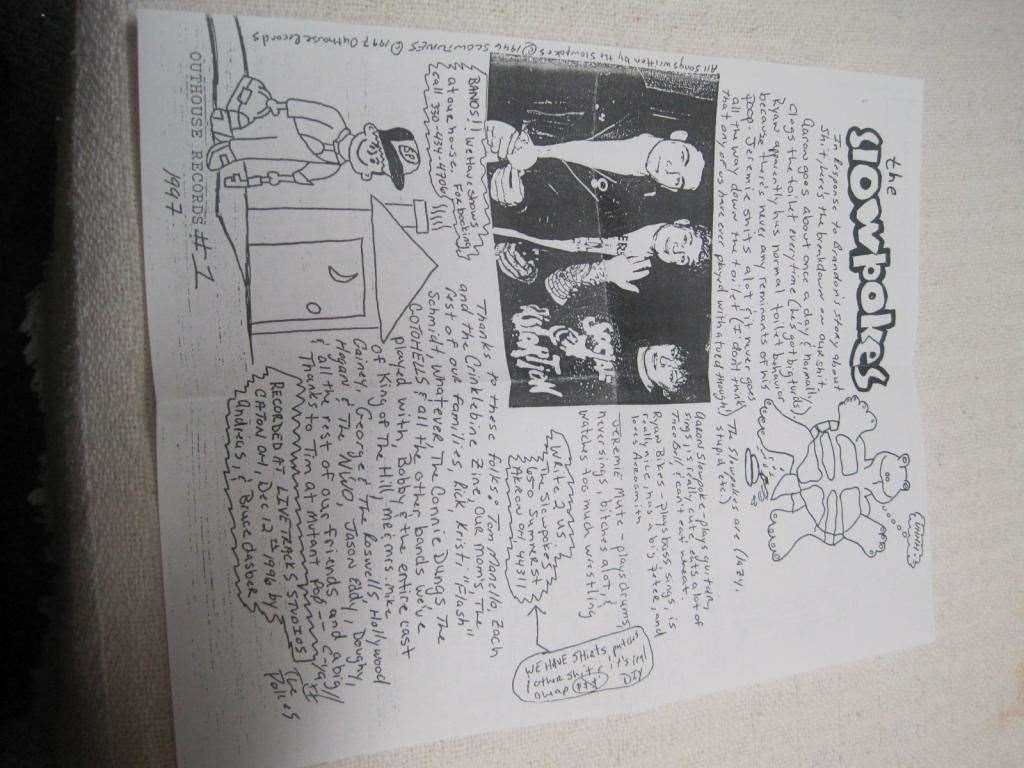 the
SlowPokes
In Response to Brandon's story about
Shit, here's the breakdown on our shit,
goes about once a day & normally
Clogs the toilet everytime (he's got big turds)
Ryan apparently has normal toilet behavior
because there's never any remnants of his
poop. Jeremie shits alot & it never goes
all the way down the toilet (I don't think
that any of us have ever played with a turd though)
The Slowpokes are (lazy,
stupid etc.)
Slowpoke - plays guitar,
sings, is really cute, eats a lot of
Taco Bell, can't eat wheat.
Ryan Bikes - plays bass, sings, is
really nice, has a big and
loves
Jeremie Mute - plays drums,
never sings, bitches alot, &
watches too much wrestling
Write 2 us
The Slowpokes
650 Sumner St
Akron OH 44311
WE HAVE Shirts, patches
& other shit & it's
cheap DIY
All Songs written by the Slowpokes © 1996 SLOWTUNES © 1997 Outhouse Records
BANDS!! We have shows
at our house. For booking
call 330-434-
Thanks to these folks: Tom Zach
and the Crinklebine Zine, Our moms, The
Rest of our families, Rick Krist, "Flash"
Schmidt, Whatever, The Connie Dungs, The
& all the other bands we've
played with, Bobby & the entire cast
of King of The Hill, me & mrs. Mike
Gainey, George & The Roswells, Hollywood
Hogan & The NWO, Jason Eddy, Doughy,
& all the rest of our friends and above all
Thanks to Tim at Mutant Pop
RECORDED AT LIVE TRACKS STUDIOS
CANTON OH, Dec 12th 1996 by
Andrews & Bruce
OUTHOUSE RECORDS #1
1997